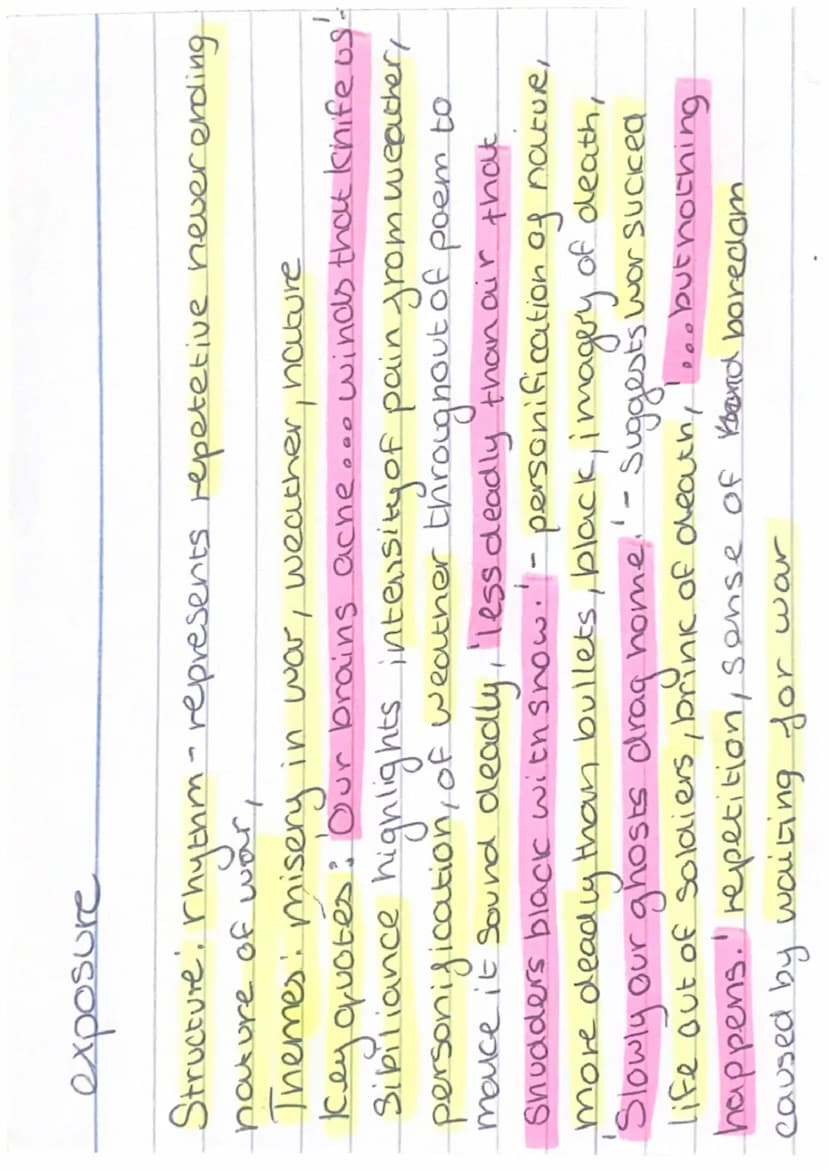 exposure
Structure: rhythm - represents repetetive never ending
nature of war,
Themes: misery in war, weather, nature
Key quotes: 'Our brains ache... winds that knife us'-
Sibiliance highlights intensity of pain from weather,
personification, of weather throughout of poem to
make it sound deadly, 'less deadly than air that
Shudders black with snow.' - personification of nature,
more deadly than bullets, black, imagery of death,
'Slowly our ghosts drag home,' - suggests war sucked
life out of soldiers, brink of death, '...but nothing
happens.' repetition, sense of boredom
caused by waiting for war